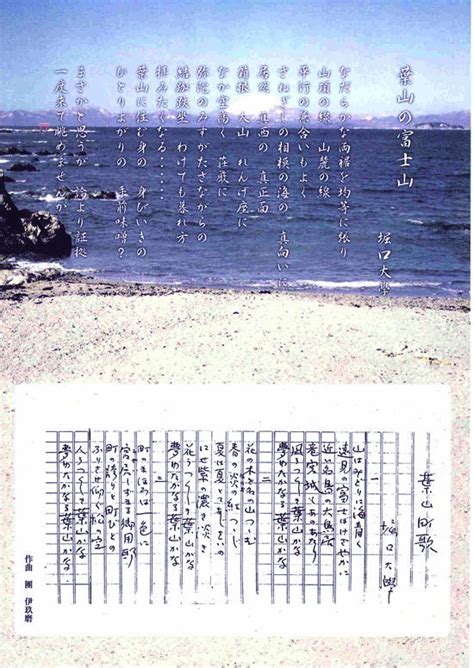 葉山の富士山
堀口大學
なだらかな両裾を均等に張り
山頂の線 山麓の線
平行の釣合いもよく
さねざしの相模の海の 真向いに
居然 真西の 真正面
箱根 大山 れんげ座に
なか空高く 荘厳に
弥陀のみすがたさながらの
結跏趺坐 わけても暮れ方
拝みたくなる・・・・・
葉山に住む身の 身びいきの
ひとりよがりの 手前味噌?
まさかと思うが 論より証拠
一度来て眺めませんか
葉山町歌
堀口大學
一
山はみどりに海青く
遠見の富士はけざやかに
近い名島の大鳥居
竜宮城もこのあたり
風うつくしき葉山かな
夢ゆたかなる葉山かな
二
花の木
春は
夏は
花うつくしき葉山かな
夢ゆたかなる葉山かな
三
町のまほろば 一色に
御用邸
町の誇りと町びとの
ふりさけ仰ぐ松の空
人うつくしき葉山かな
夢ゆたかなる葉山かな
作曲 團 伊玖磨